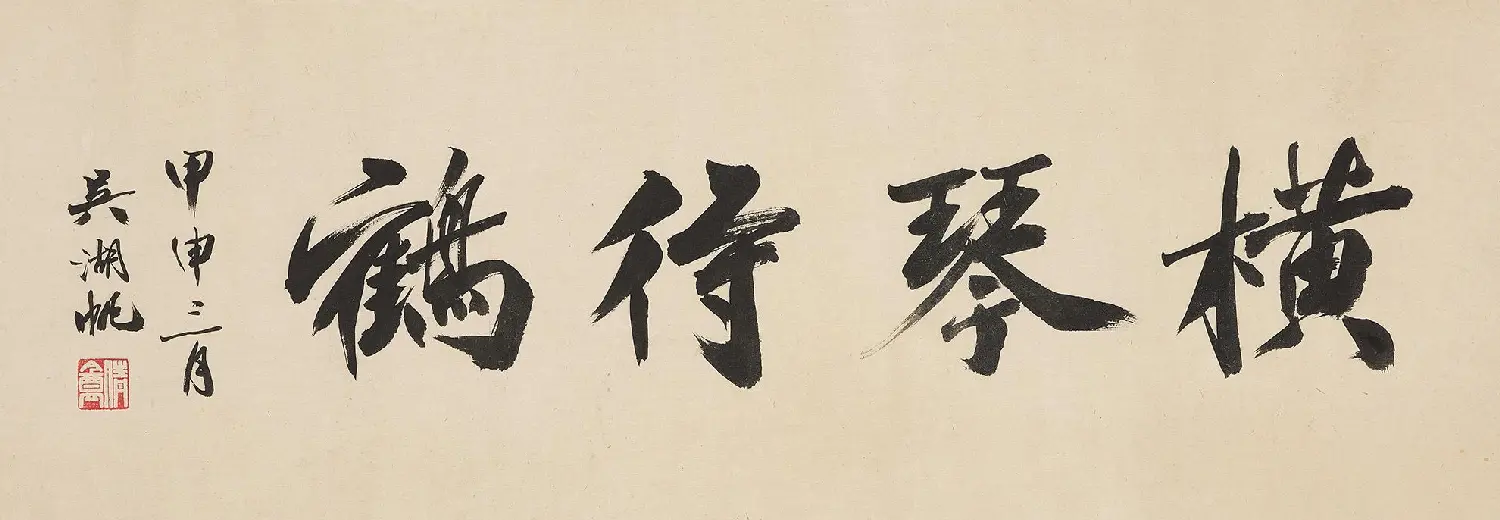 橫琴待鶴
甲申三月
吳湖帆